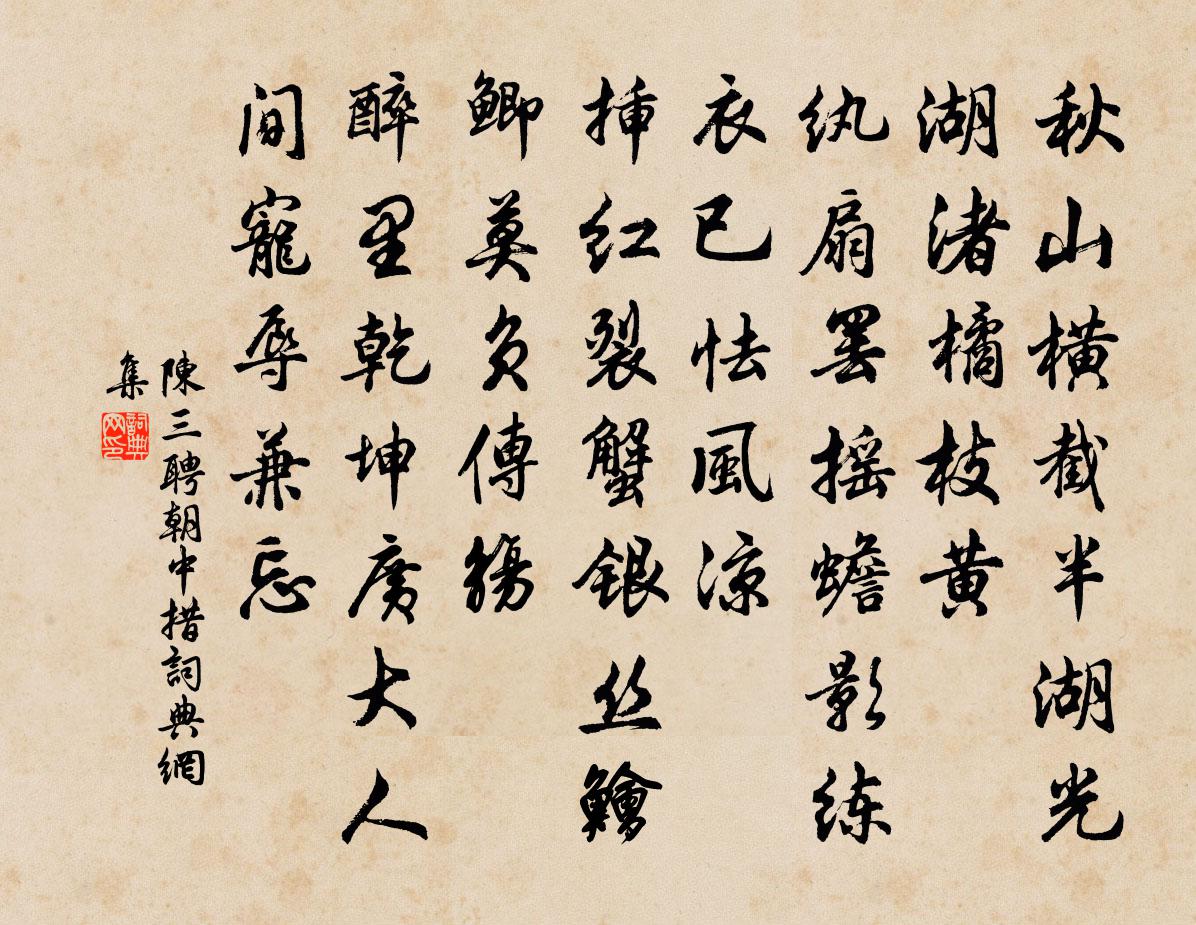 秋山橫截半湖光
湖渚橘枝黃
紈扇罢摇蟾影
练衣已怯風涼
揷红裂蟹银丝鱠
鲫莫负傳觴
醉里乾坤廣大人
间寵辱兼忘
陳三聘朝中措詞典網
集
詞典网印